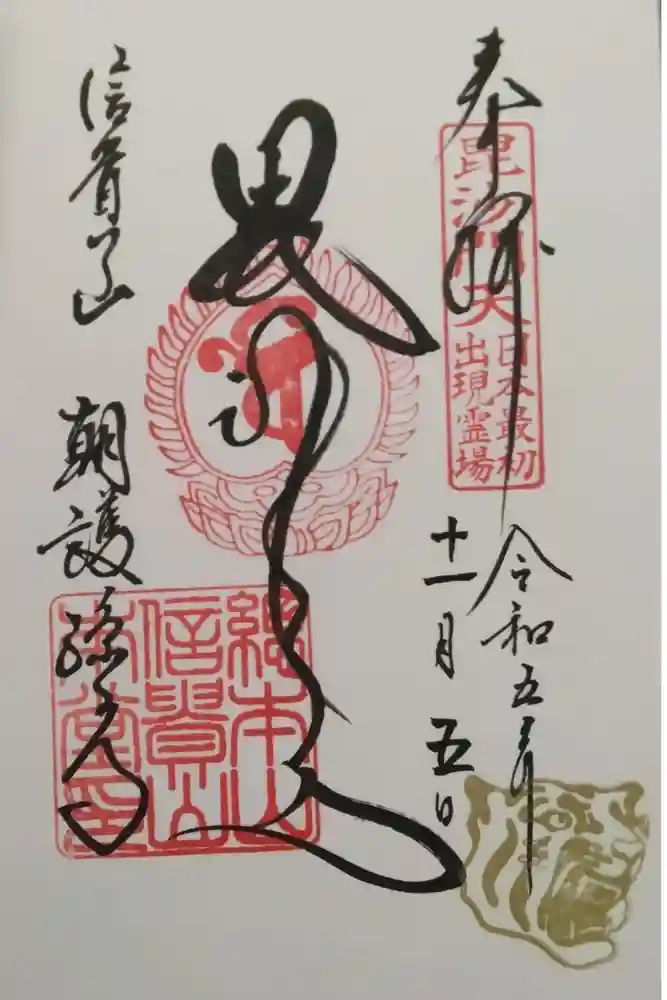 奉拝
毘沙門天
日本最初
出現霊場
令和五年
十一月五日
毘沙門天
信貴山
朝護孫子寺
總本山
信貴山
本堂印